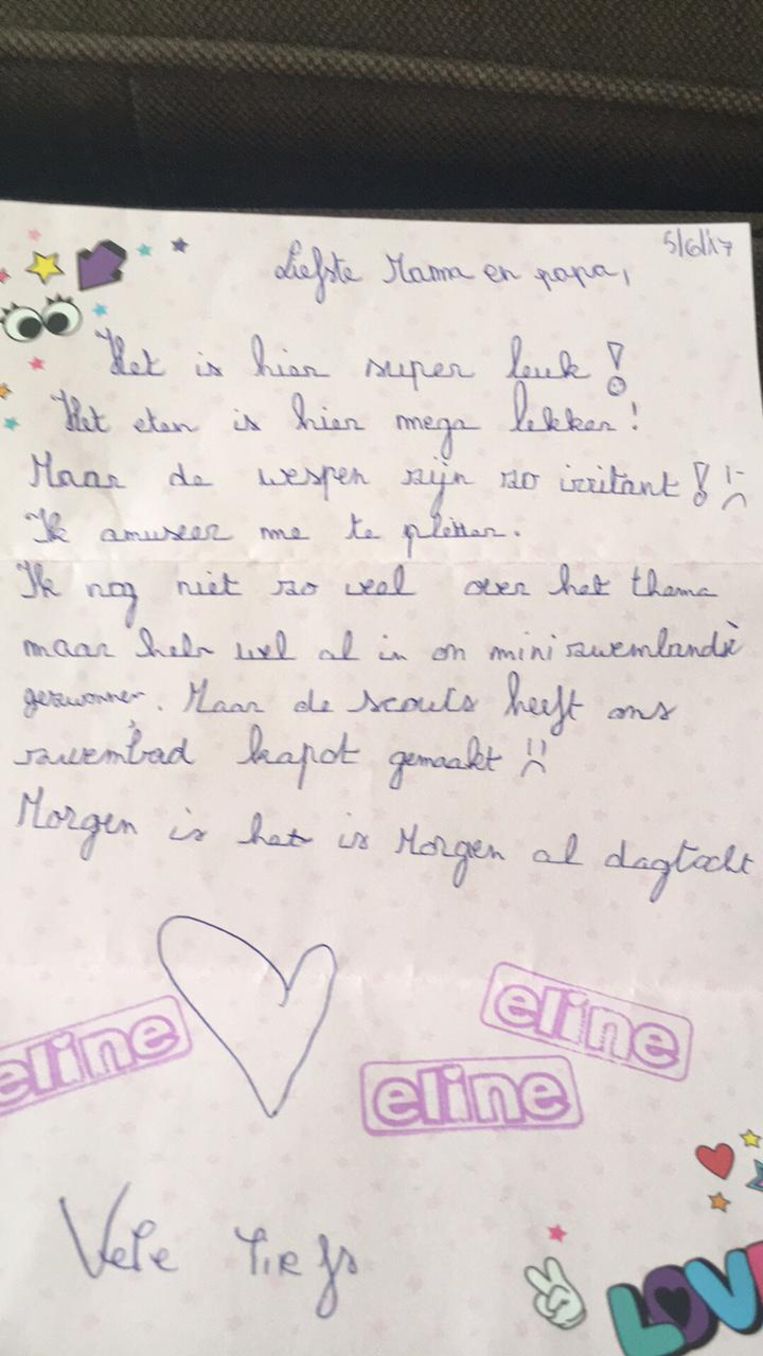 5/6/17
Liefste Mama en papa,
Het is hier super leuk!
Het eten is hier mega lekker!
Maar de wespen zijn zo irritant!
Ik amuseer me te pletter.
Ik nog niet zo veel over het thema
maar heb wel al in on mini zwemlandsè
gezwommen. Maar de scouts heeft ons
zwembad kapot gemaakt!!
Morgen is het is Morgen al dagtocht
eline
eline
eline
Vele liefs
LOV